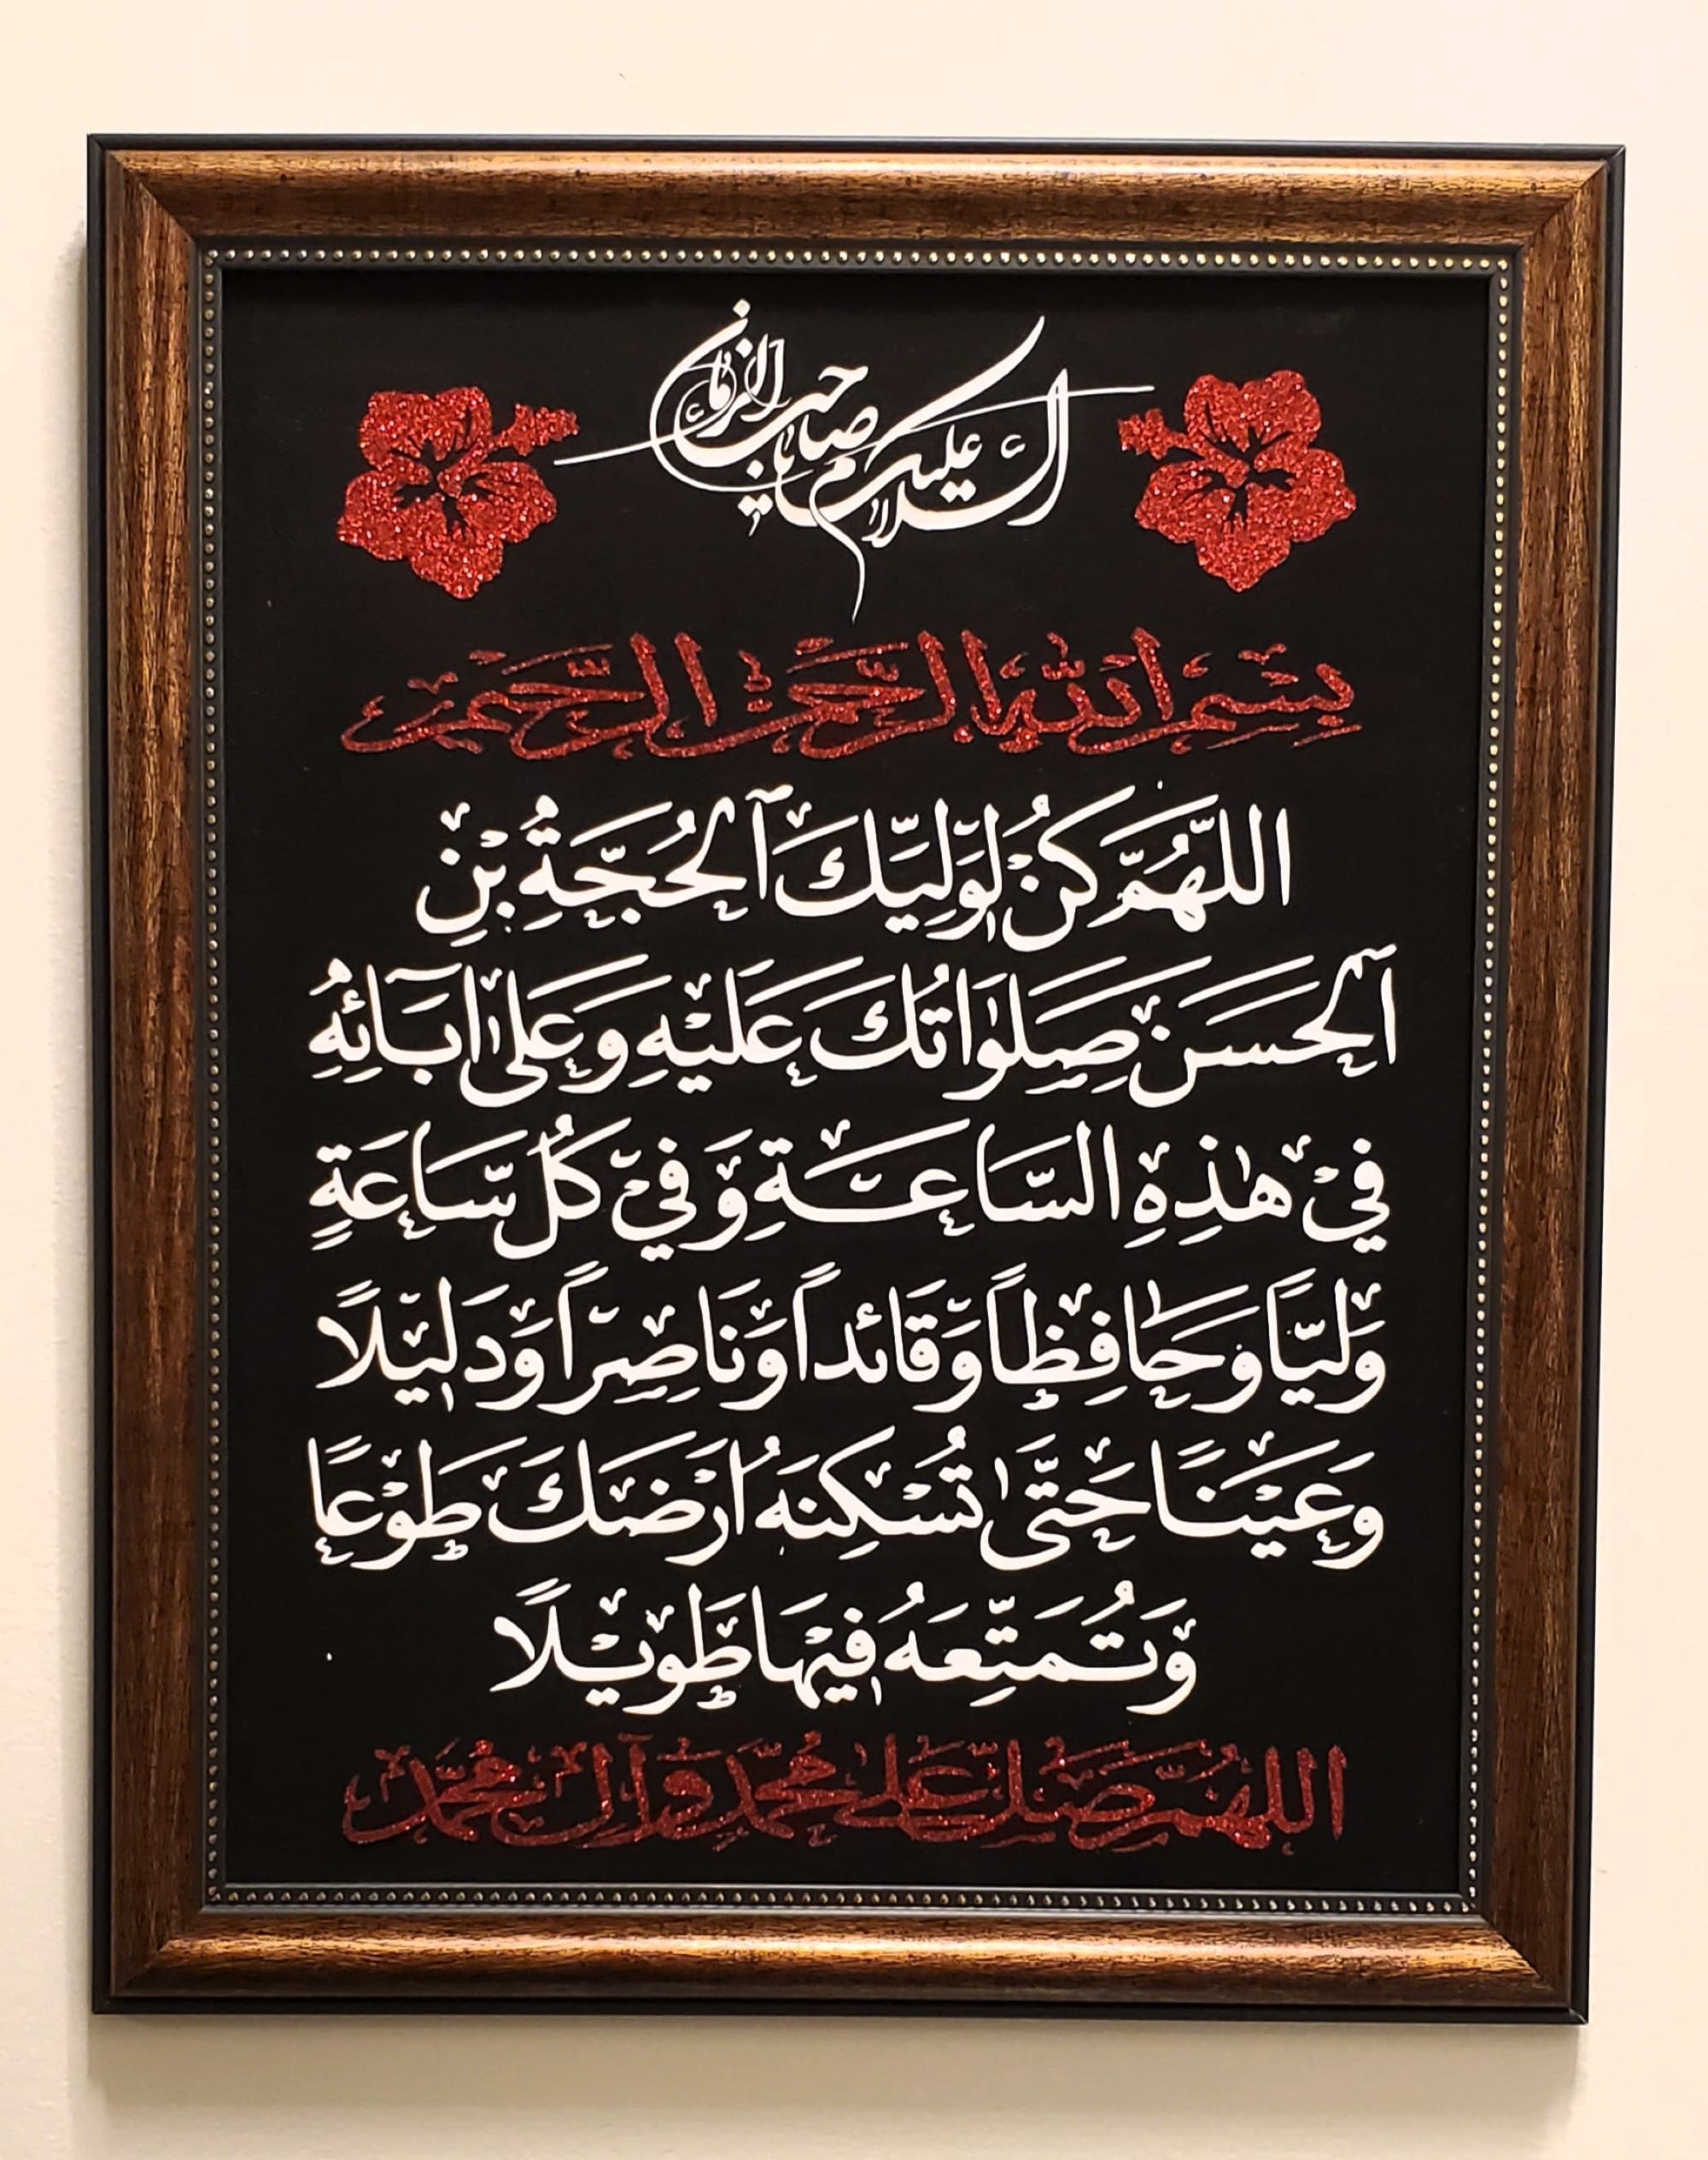 السلام عليكم يا صاحب الزمان
بِسْمِ اللهِ الرَّحْمٰنِ الرَّحِيْمِ
اللهُمَّ كُنْ لِوَلِيِّكَ ٱلْحُجَّةِ بْنِ
ٱلْحَسَنِ صَلَوَاتُكَ عَلَيْهِ وَعَلىٰ اٰبَآئِهِ
فِيْ هٰذِهِ السَّاعَةِ وَفِيْ كُلِّ سَاعَةٍ
وَلِيّاً وَحَافِظاً وَقَائداً وَنَاصِراً وَدَلِيْلًا
وَعَيْنًا حَتّىٰ تُسْكِنَهُ اَرْضَكَ طَوْعًا
وَتُمَتِّعَهُ فِيْهَا طَوِيْلًا
اللهُمَّ صَلِّ عَلىٰ مُحَمَّدٍ وَآلِ مُحَمَّدٍ